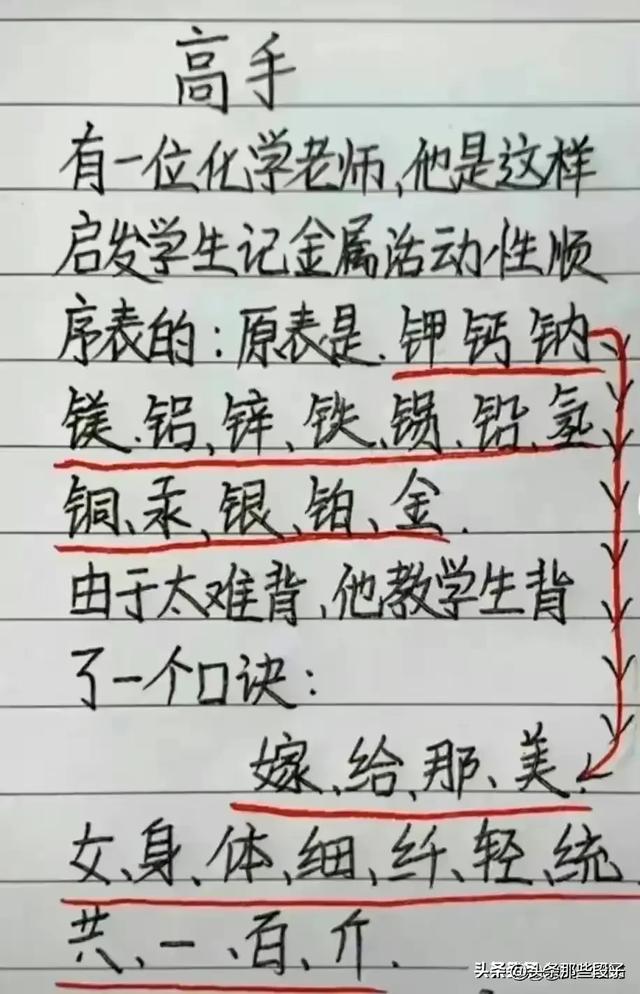 高手
有一位化学老师,他是这样
启发学生记金属活动性顺
序表的:原表是.钾钙钠、
镁.铝、锌、铁、锡、铅、氢
铜、汞、银、铂、金.
由于太难背,他教学生背
了一个口诀:
嫁、给、那、美.
女、身、体、细、纤、轻、统
共、一、百、斤.
头条@头条那些段子